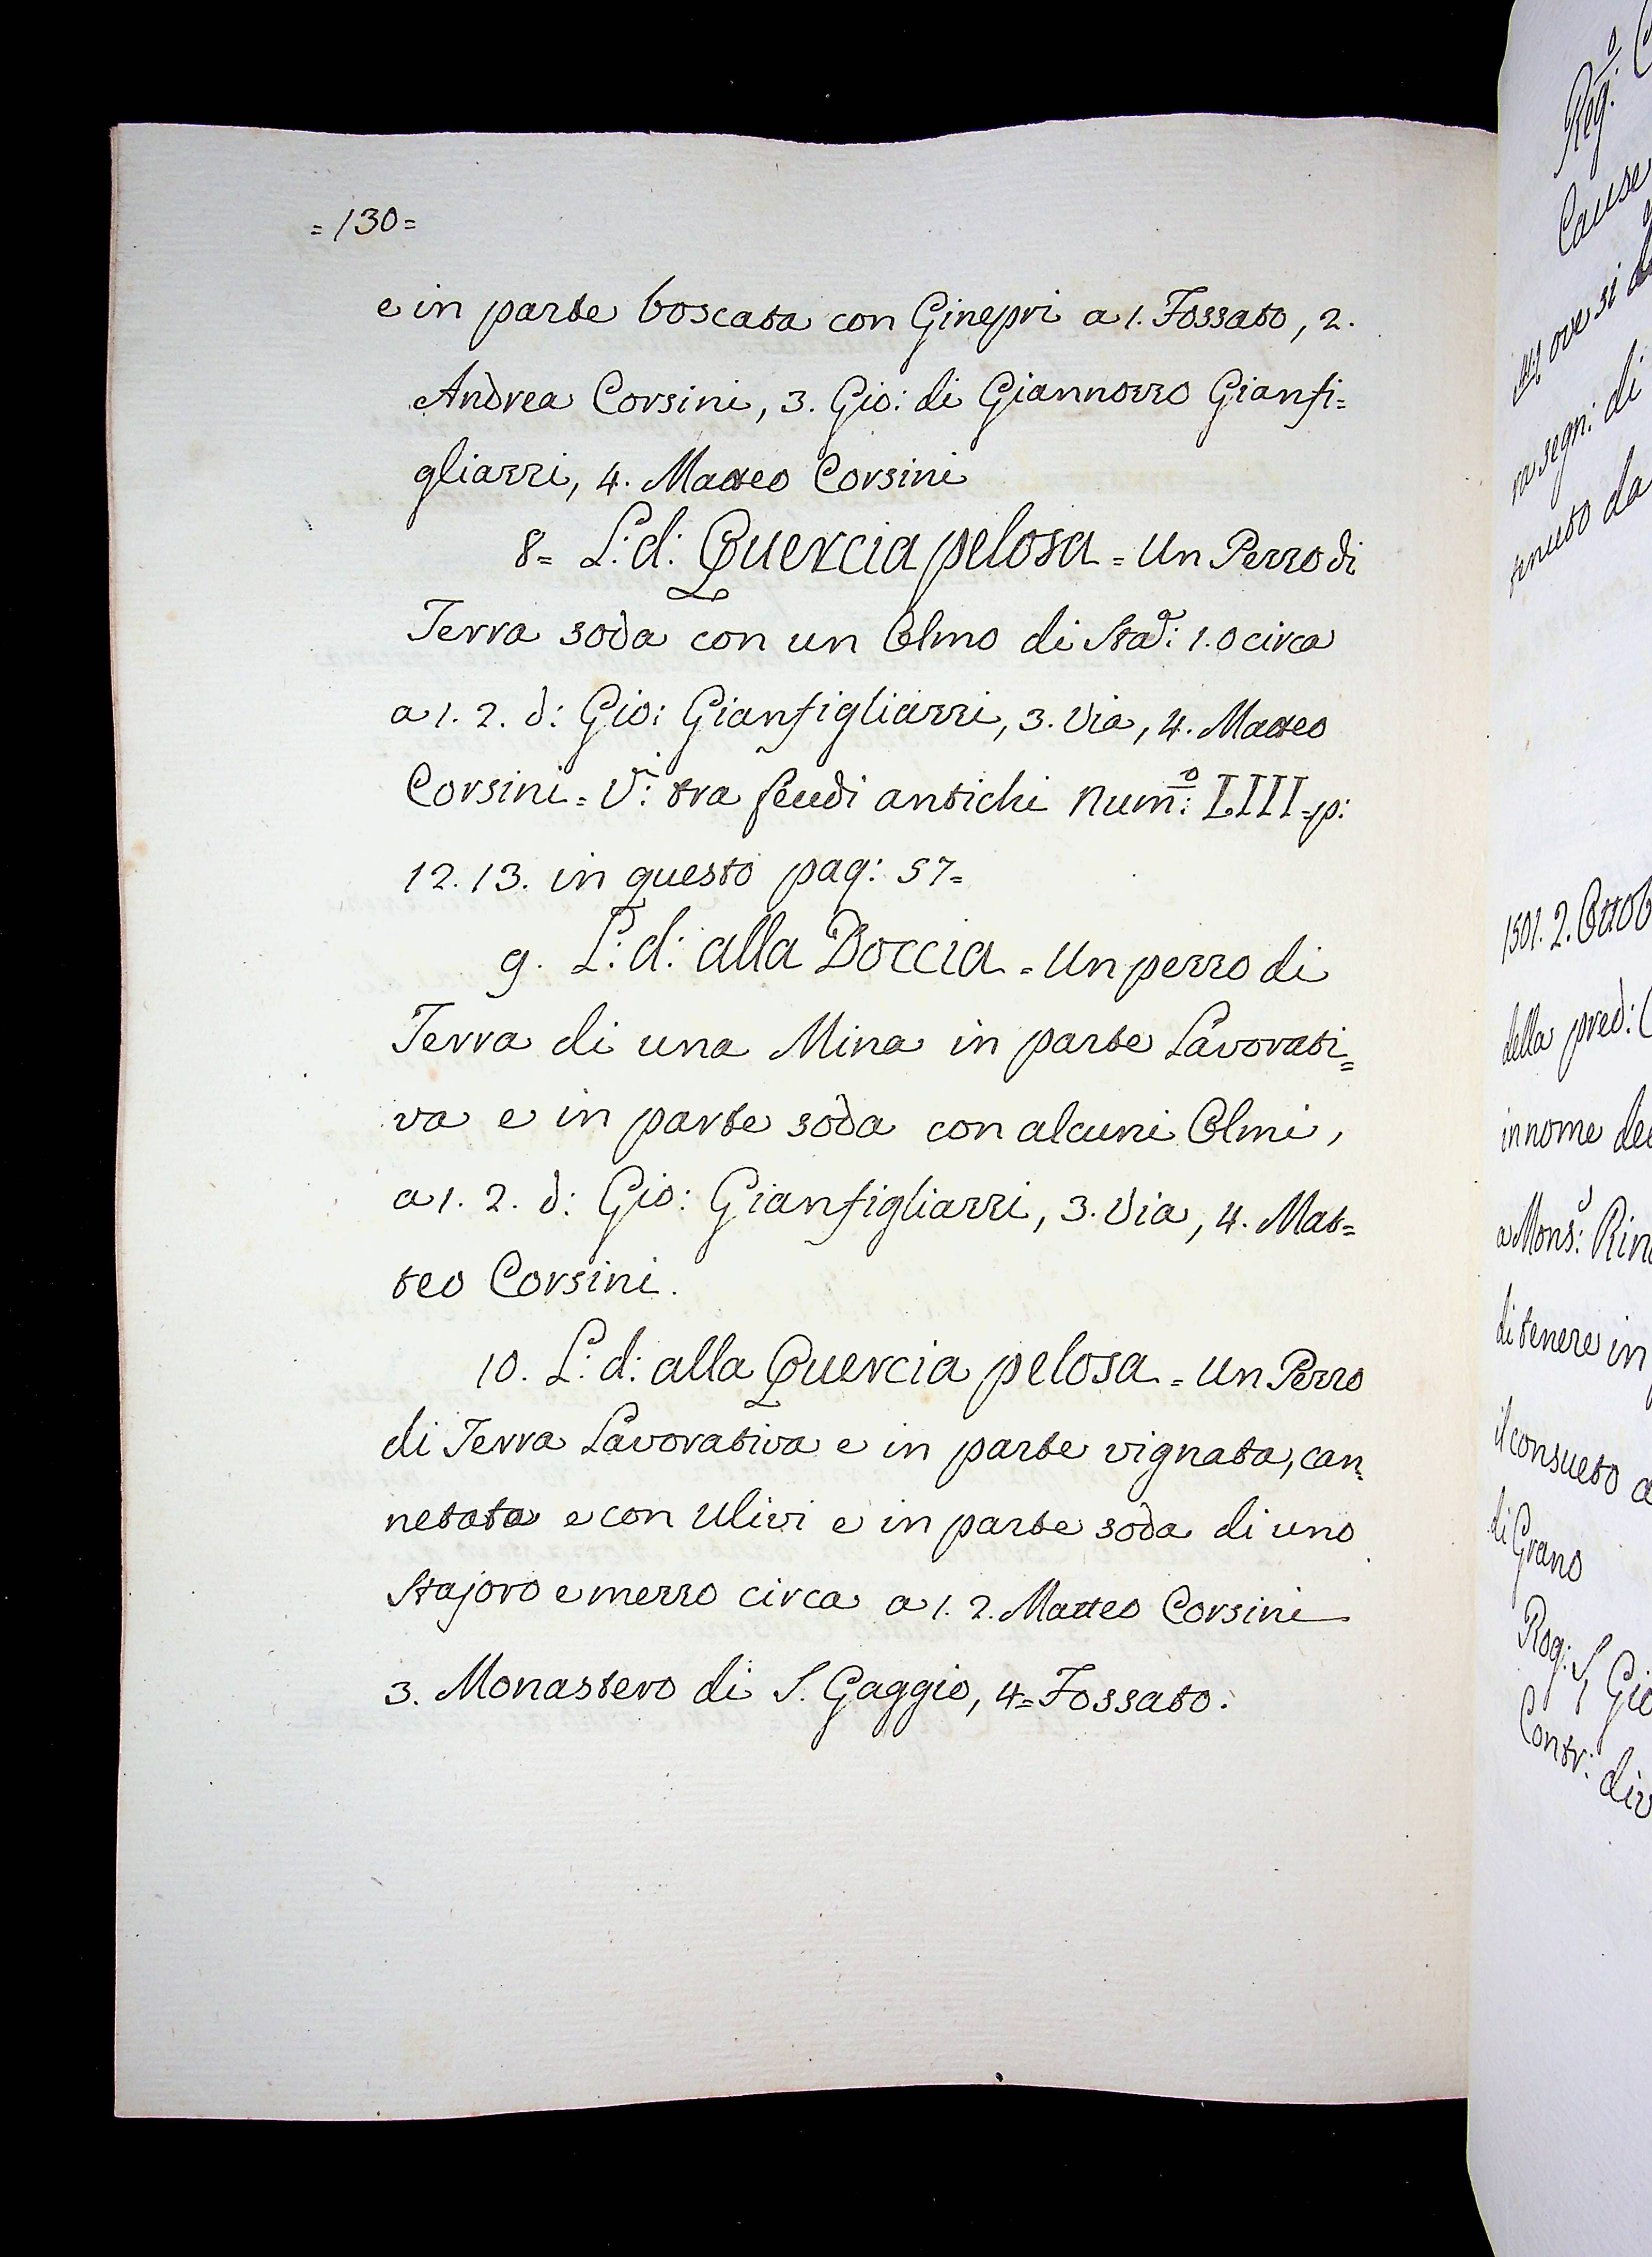 =130=
e in parte boscata con Ginepri a 1. Fossato, 2.
Andrea Corsini, 3. Gio: di Giannozzo Gianfi=
gliazzi, 4. Matteo Corsini
8= L: d: Quercia pelosa = Un Pezzo di
Terra soda con un Olmo di Sta:ª 1.0 circa
a 1. 2. d: Gio: Gianfigliazzi, 3. Via, 4. Matteo
Corsini = V: tra feudi antichi Num:º LIII = p:
12. 13. in questo pag: 57=
9. L: d: alla Doccia = Un pezzo di
Terra di una Mina in parte Lavorati=
va e in parte soda con alcuni Olmi,
a 1. 2. d: Gio: Gianfigliazzi, 3. Via, 4. Mat=
teo Corsini.
10. L: d: alla Quercia pelosa = Un Pezzo
di Terra Lavorativa e in parte vignata, can=
netata e con Ulivi e in parte soda di uno
Stajoro e mezzo circa a 1. 2. Matteo Corsini
3. Monastero di S. Gaggio, 4= Fossato.
Reg:º
Cause
ove si
segn: di
tenuto da
1501. 2. Ottob
della pred:
in nome de
a Mons:
di tenere in
il consueto
di Grano
Rog: S Gio
Contr: div